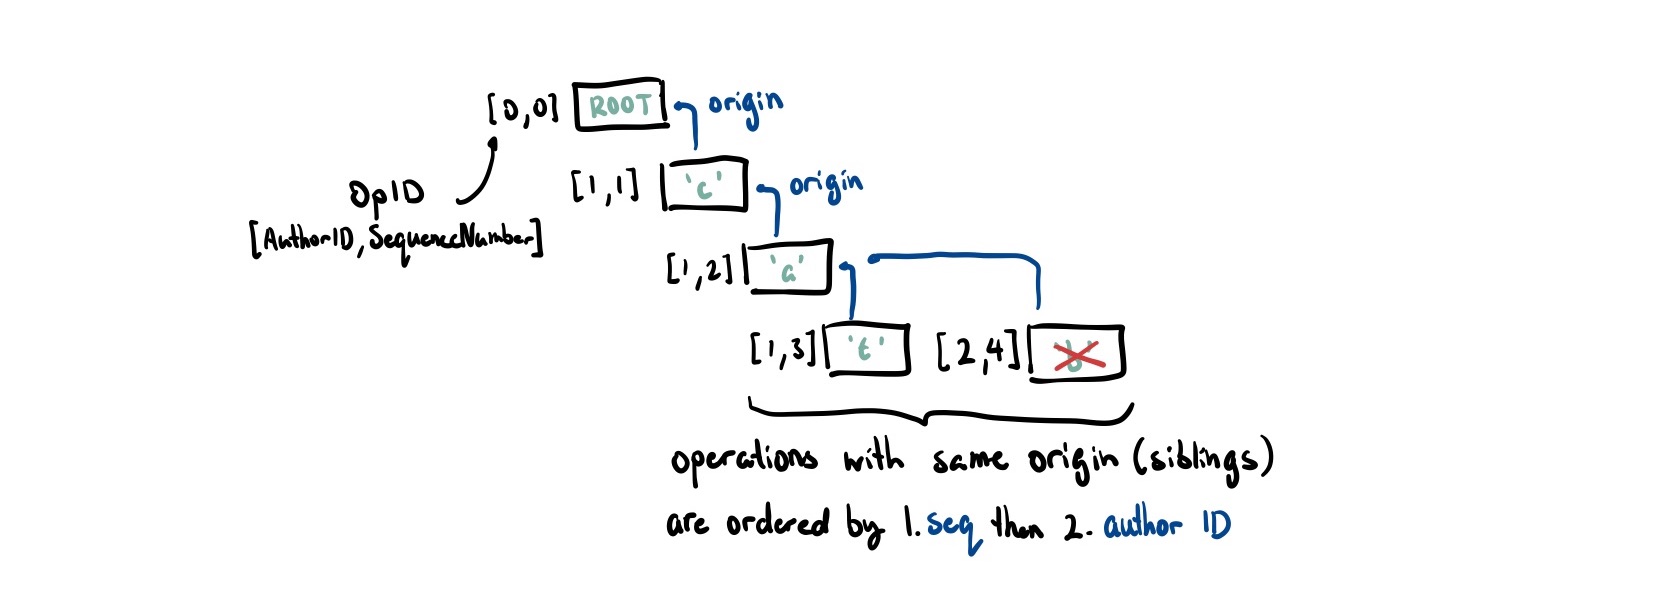 [0,0] ROOT origin
[1,1] 'c' origin
OpID
[AuthorID, SequenceNumber]
[1,2] 'a'
[1,3] 't' [2,4]
operations with same origin (siblings)
are ordered by 1. seq then 2. author ID